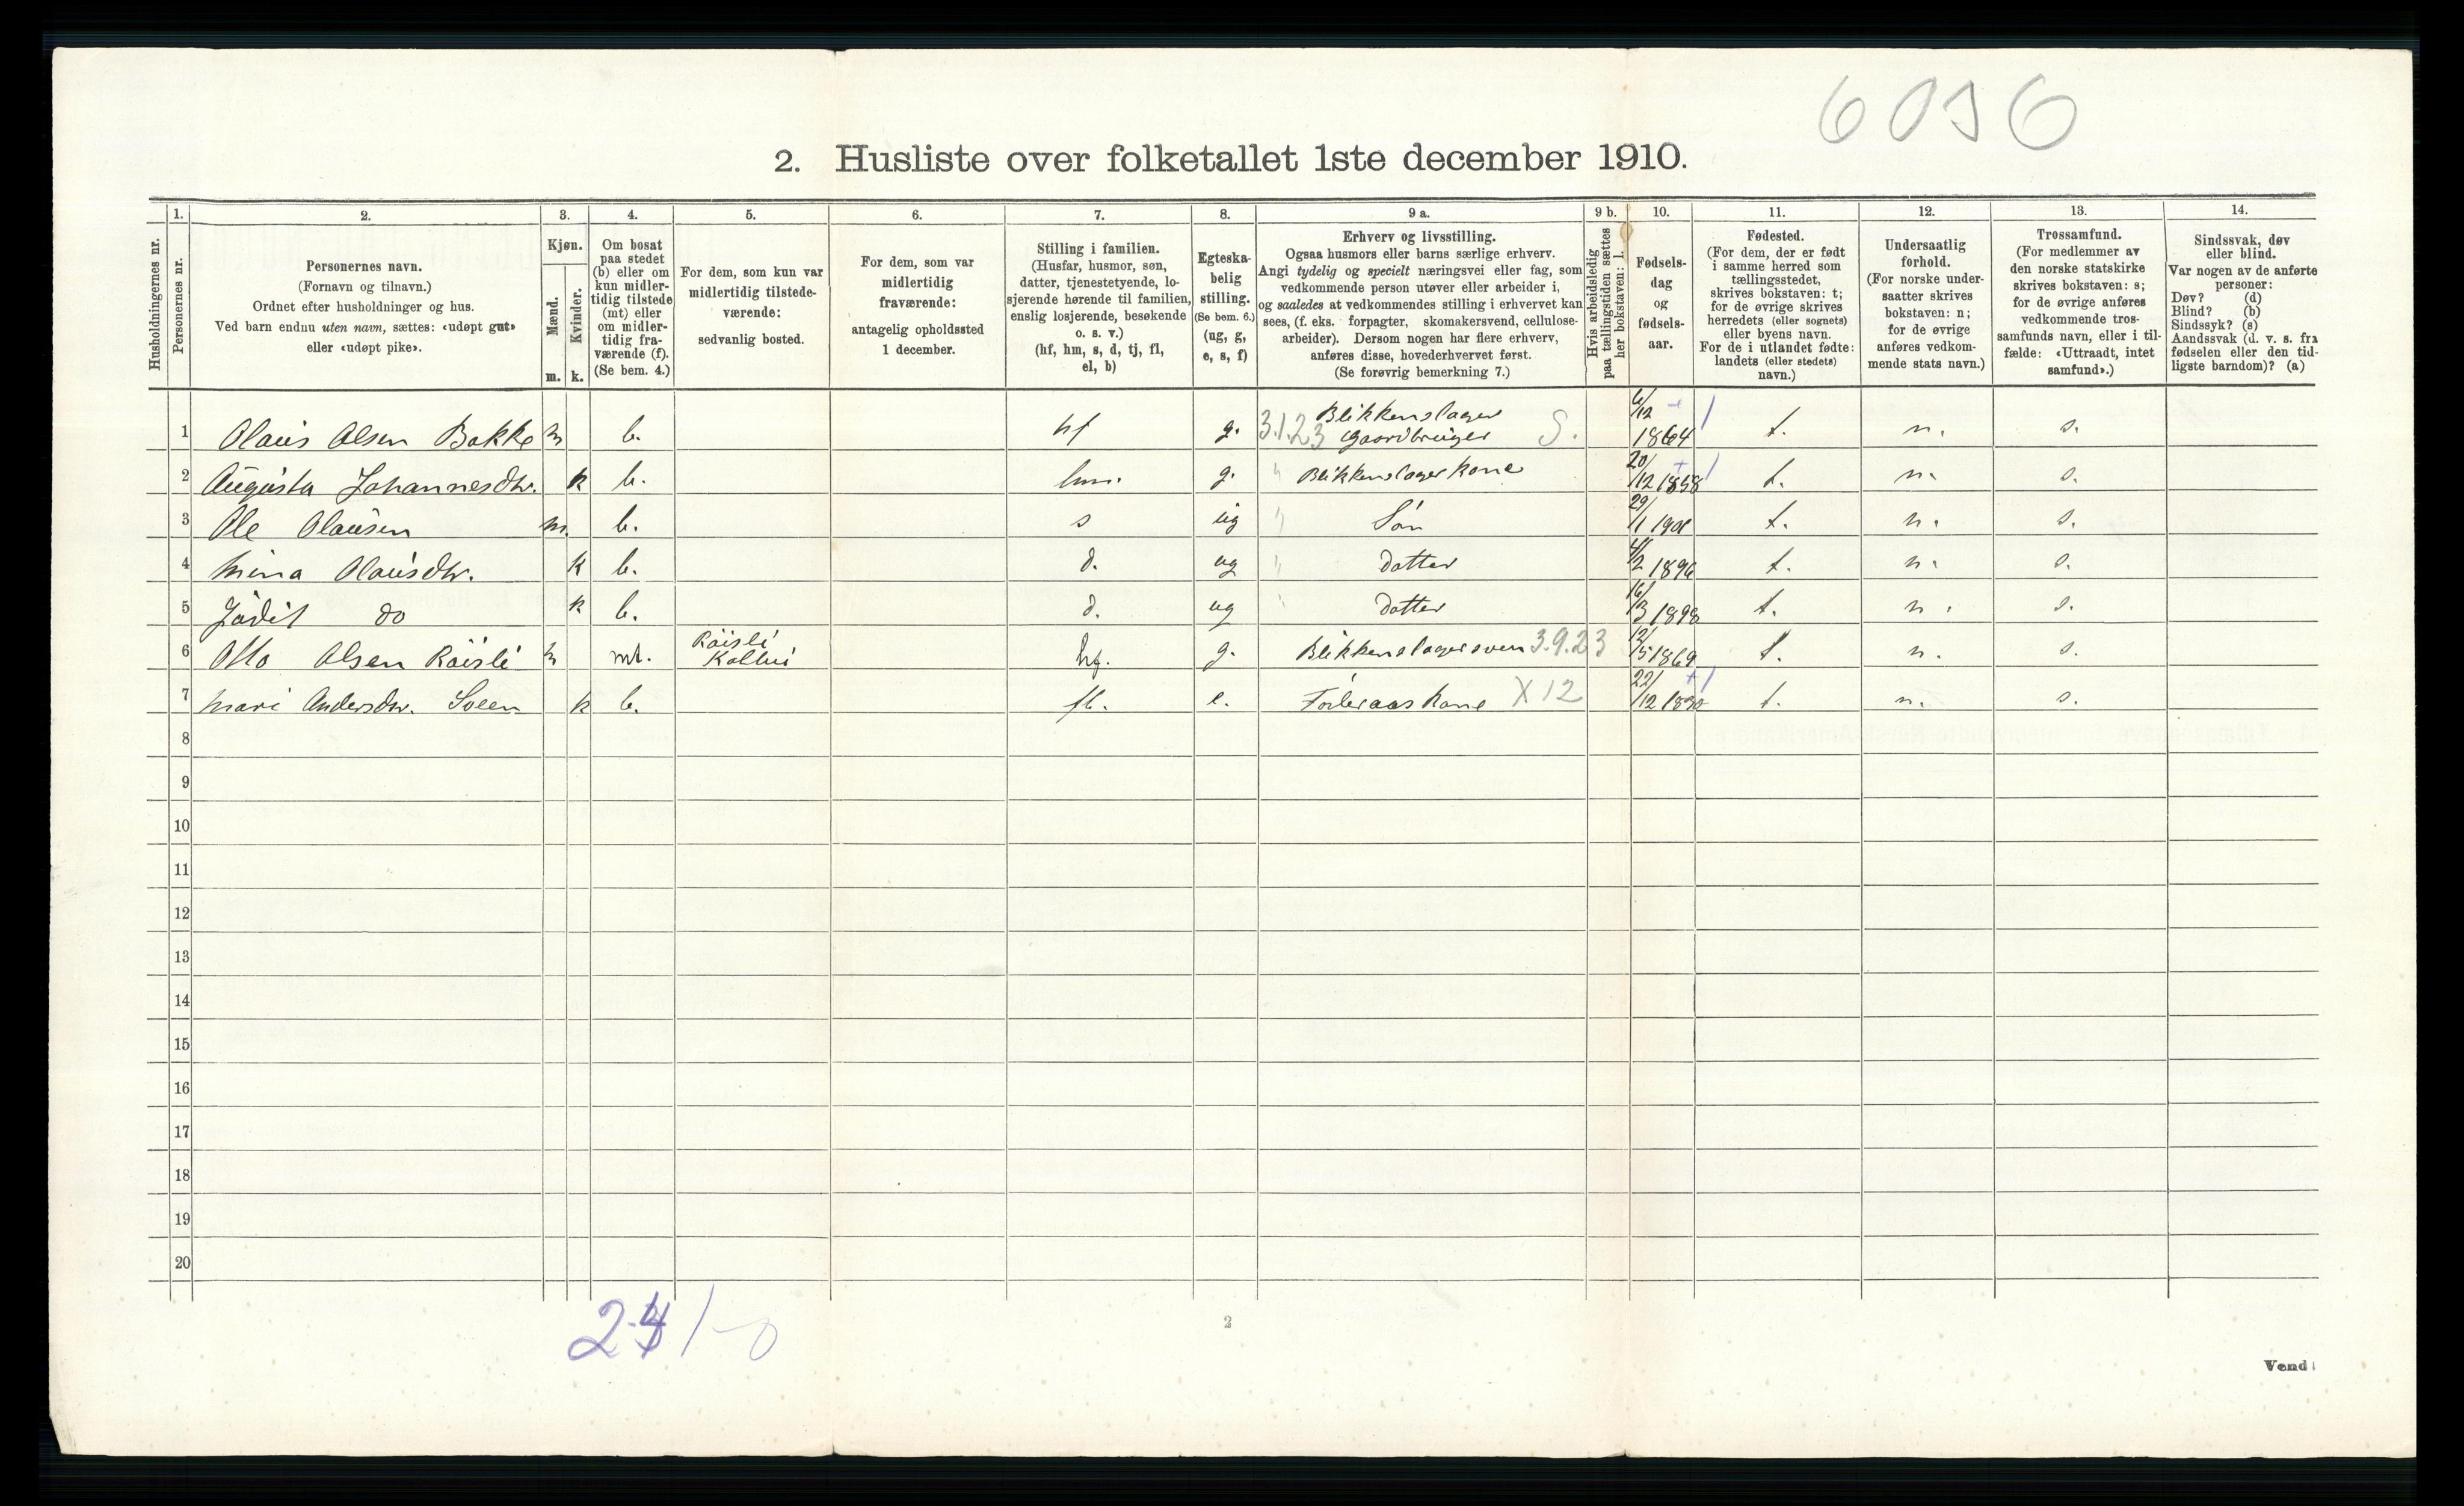 6036
2. Husliste over folketallet 1ste december 1910.
Husholdningernes nr.
1.
Personernes nr.
2.
Personernes navn.
(Fornavn og tilnavn.)
Ordnet efter husholdninger og hus.
Ved barn endnu uten navn, sættes: «udøpt gut»
eller «udøpt pike».
3.
Kjøn.
Mænd.
Kvinder.
m. k.
4.
Om bosat
paa stedet
(b) eller om
kun midler-
tidig tilstede
(mt) eller
om midler-
tidig fra-
værende (f).
(Se bem. 4.)
5.
For dem, som kun var
midlertidig tilstede-
værende:
sedvanlig bosted.
6.
For dem, som var
midlertidig
fraværende:
antagelig opholdssted
1 december.
7.
Stilling i familien.
(Husfar, husmor, søn,
datter, tjenestetyende, lo-
sjerende hørende til familien,
enslig losjerende, besøkende
o. s. v.)
(hf, hm, s, d, tj, fl,
el, b)
8.
Egteska-
belig
stilling.
(Se bem. 6.)
(ug, g,
e, s, f)
9 a.
Erhverv og livsstilling.
Ogsaa husmors eller barns særlige erhverv.
Angi tydelig og specielt næringsvei eller fag, som
vedkommende person utøver eller arbeider i,
og saaledes at vedkommendes stilling i erhvervet kan
sees, (f. eks. forpagter, skomakersvend, cellulose-
arbeider). Dersom nogen har flere erhverv,
anføres disse, hovederhvervet først.
(Se forøvrig bemerkning 7.)
9 b.
Hvis arbeidsledig
paa tællingstiden sættes
her bokstaven: l.
10.
Fødsels-
dag
og
fødsels-
aar.
11.
Fødested.
(For dem, der er født
i samme herred som
tællingsstedet,
skrives bokstaven: t;
for de øvrige skrives
herredets (eller sognets)
eller byens navn.
For de i utlandet fødte:
landets (eller stedets)
navn.)
12.
Undersaatlig
forhold.
(For norske under-
saatter skrives
bokstaven: n;
for de øvrige
anføres vedkom-
mende stats navn.)
13.
Trossamfund.
(For medlemmer av
den norske statskirke
skrives bokstaven: s;
for de øvrige anføres
vedkommende tros-
samfunds navn, eller i til-
fælde: «Uttraadt, intet
samfund».)
14.
Sindssvak, døv
eller blind.
Var nogen av de anførte
personer:
Døv? (d)
Blind? (b)
Sindssyk? (s)
Aandssvak (d. v. s. fra
fødselen eller den tid-
ligste barndom)? (a)
1 Olaus Olsen Bakke m b. hf g. 3.1.23 Blikkenslager Gaardbruger S. 6/12 1864 t. n. s.
2 Augusta Johannesdtr. k b. hm. g. " Blikkenslagerkone 20/12 1858 t. n. s.
3 Ole Olausen m. b. s ug " Søn 29/11 1901 t. n. s.
4 Mina Olausdtr. k b. d. ug " Datter 4/2 1896 t. n. s.
5 Judit do k b. d. ug " Datter 16/3 1898 t. n. s.
6 Otto Olsen Röisli m mt. Röisli Kolbu hf. g. Blikkenslagersven 3.9.23 12/5 1869 t. n. s.
7 Mari Andersdtr. Sveen k b. fl. e. Föderaaskone X12 22/12 1830 t. n. s.
8
9
10
11
12
13
14
15
16
17
18
19
20
2
Vend